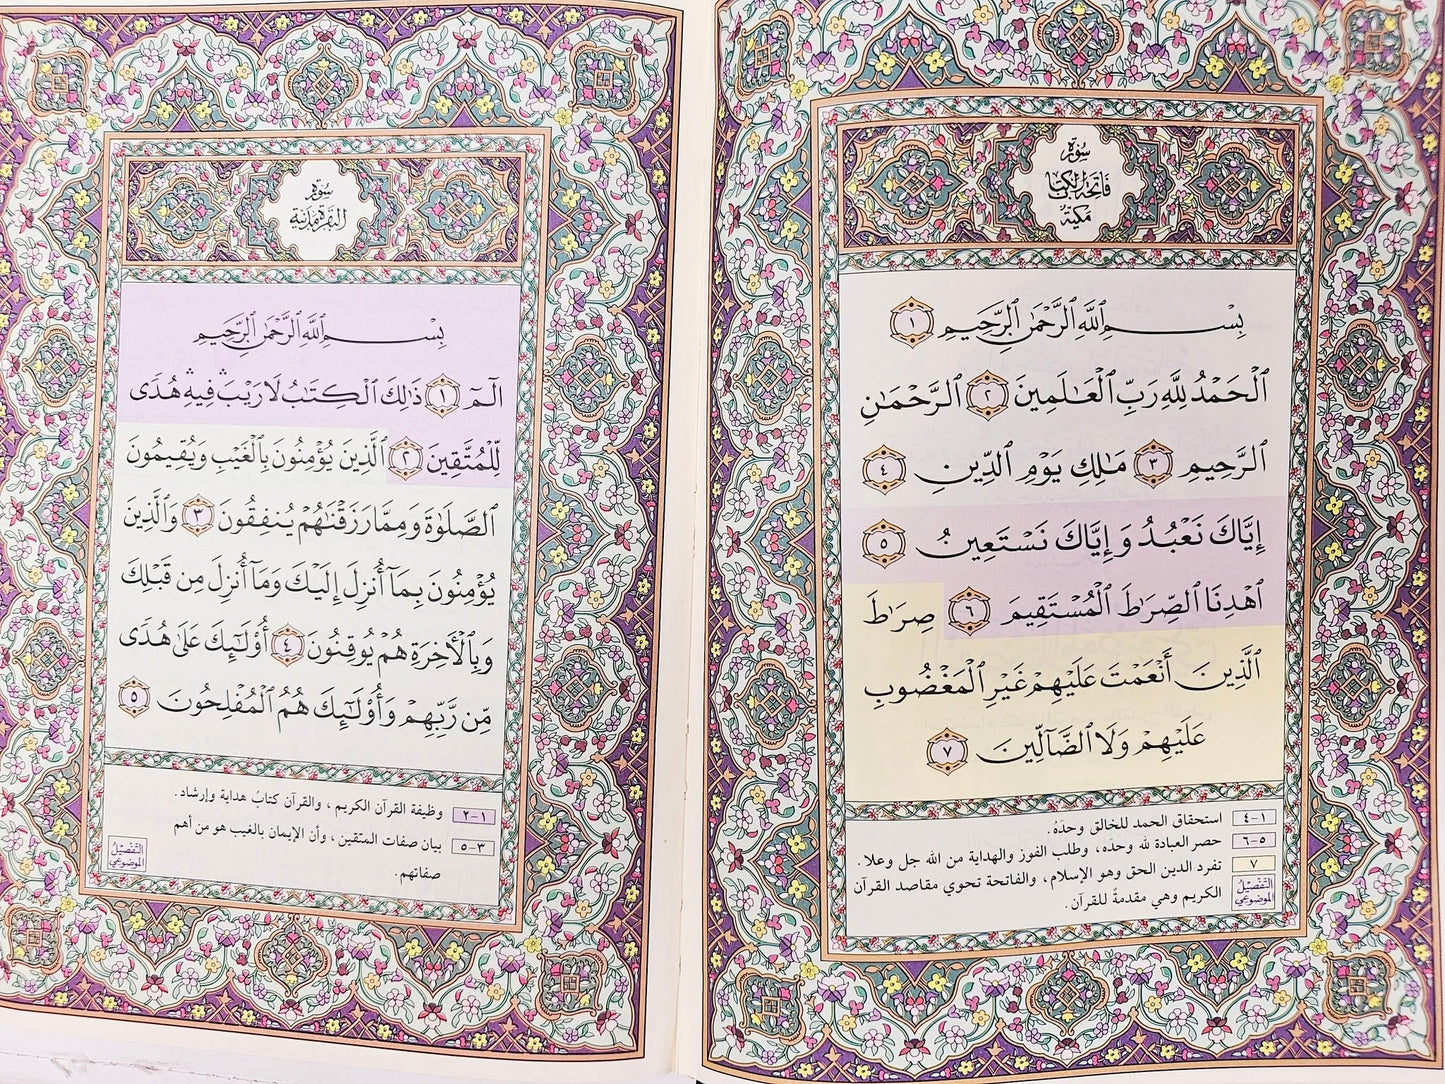 سورة
فاتحة الكتاب
مكية
بِسْمِ ٱللَّهِ ٱلرَّحْمَٰنِ ٱلرَّحِيمِ ١
ٱلْحَمْدُ لِلَّهِ رَبِّ ٱلْعَٰلَمِينَ ٢ ٱلرَّحْمَٰنِ
ٱلرَّحِيمِ ٣ مَٰلِكِ يَوْمِ ٱلدِّينِ ٤
إِيَّاكَ نَعْبُدُ وَإِيَّاكَ نَسْتَعِينُ ٥
ٱهْدِنَا ٱلصِّرَٰطَ ٱلْمُسْتَقِيمَ ٦ صِرَٰطَ
ٱلَّذِينَ أَنْعَمْتَ عَلَيْهِمْ غَيْرِ ٱلْمَغْضُوبِ
عَلَيْهِمْ وَلَا ٱلضَّآلِّينَ ٧
١-٤ استحقاق الحمد للخالق وحدَهُ.
٥-٦ حصر العبادة لله وحده، وطلب الفوز والهداية من الله جل وعلا.
٧ تفرد الدين الحق وهو الإسلام، والفاتحة تحوي مقاصد القرآن
الكريم وهي مقدمةٌ للقرآن.
التَّفْصِيْلُ
الموضوعيّ
سورة
البقرة مدنية
بِسْمِ ٱللَّهِ ٱلرَّحْمَٰنِ ٱلرَّحِيمِ
الٓمٓ ١ ذَٰلِكَ ٱلْكِتَٰبُ لَا رَيْبَ ۛ فِيهِ ۛ هُدًى
لِّلْمُتَّقِينَ ٢ ٱلَّذِينَ يُؤْمِنُونَ بِٱلْغَيْبِ وَيُقِيمُونَ
ٱلصَّلَوٰةَ وَمِمَّا رَزَقْنَٰهُمْ يُنفِقُونَ ٣ وَٱلَّذِينَ
يُؤْمِنُونَ بِمَآ أُنزِلَ إِلَيْكَ وَمَآ أُنزِلَ مِن قَبْلِكَ
وَبِٱلْأَخِرَةِ هُمْ يُوقِنُونَ ٤ أُو۟لَٰٓئِكَ عَلَىٰ هُدًى
مِّن رَّبِّهِمْ وَأُو۟لَٰٓئِكَ هُمُ ٱلْمُفْلِحُونَ ٥
١-٢ وظيفة القرآن الكريم، والقرآن كتابُ هداية وإرشاد.
٣-٥ بيان صفات المتقين، وأن الإيمان بالغيب هو من أهم
صفاتهم.
التَّفْصِيْلُ
الموضوعيّ